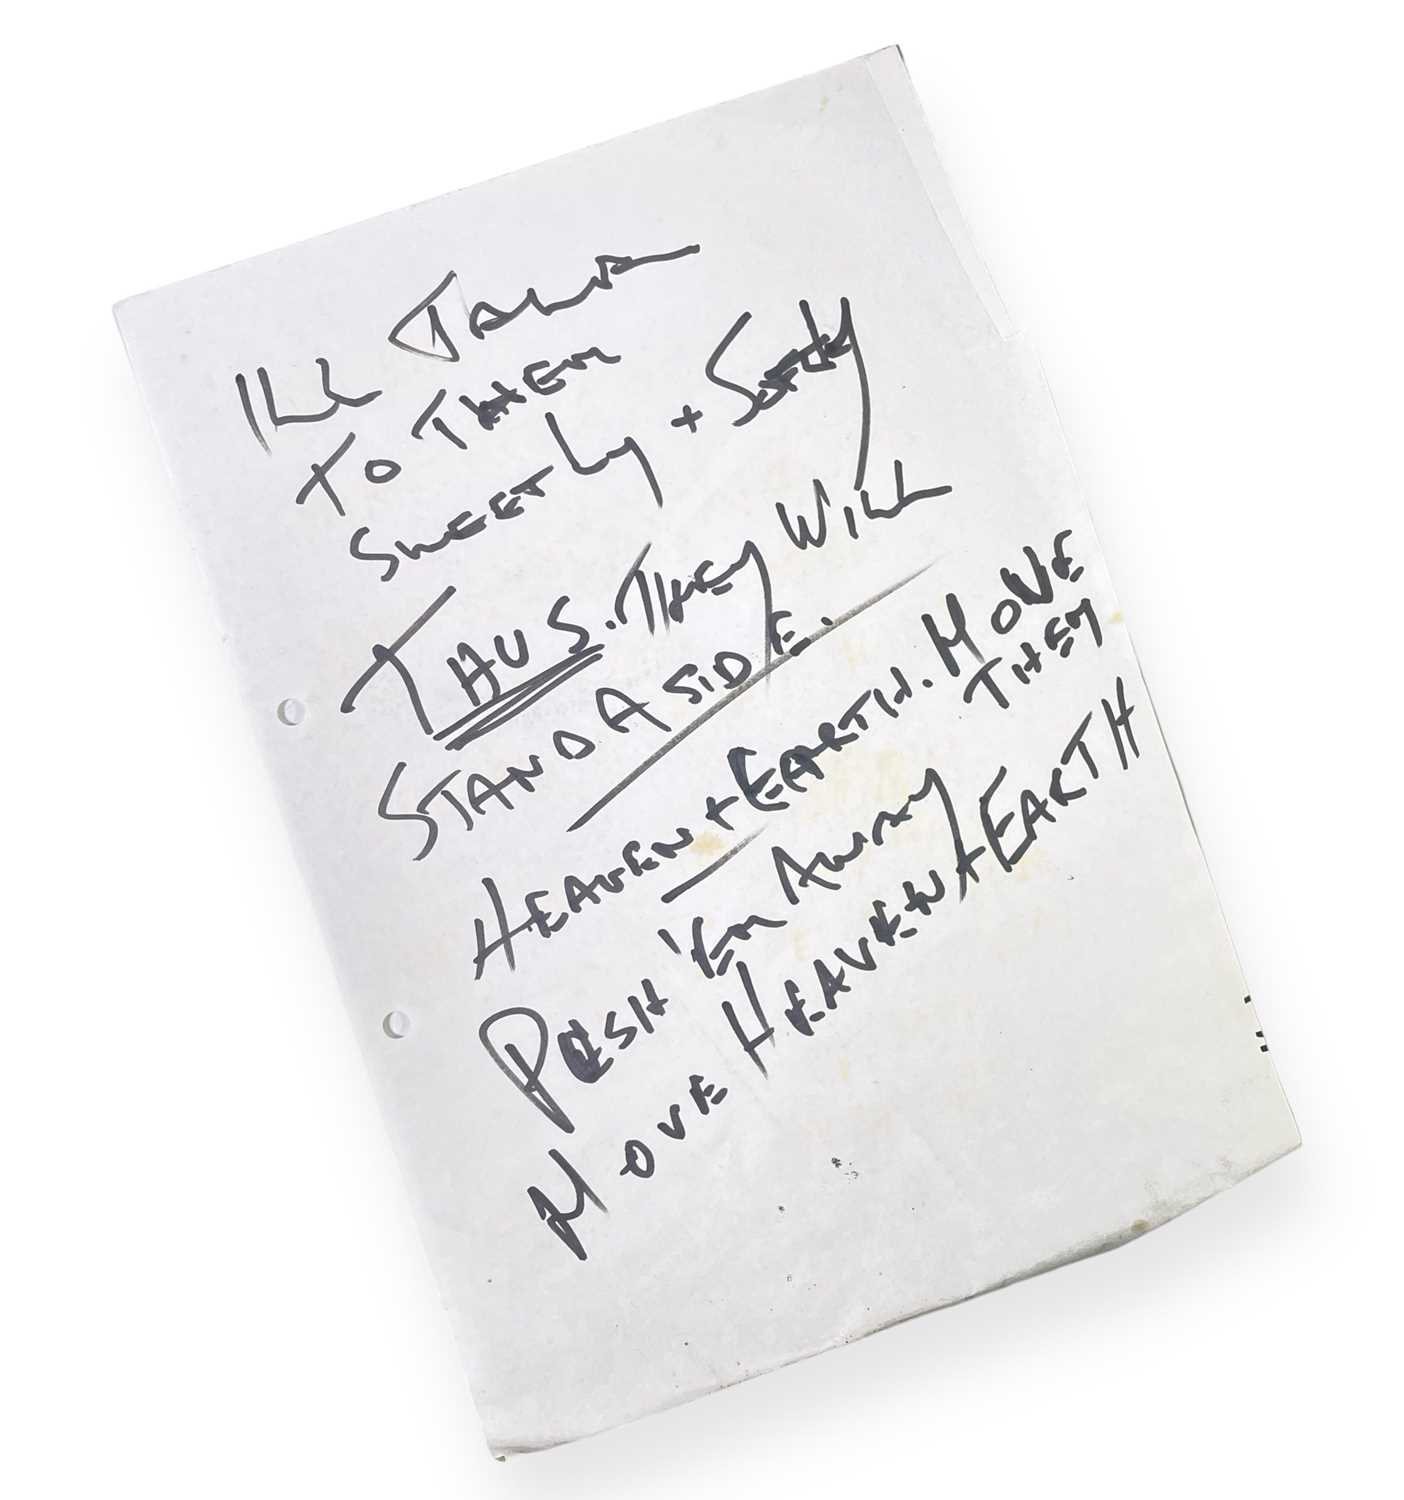 ILL TALK
TO THEM
SWEETLY + SOFTLY
THUS. THEY WILL
STAND ASIDE.
HEAVEN + EARTH. MOVE
THEM
PUSH 'EM AWAY
MOVE HEAVEN + EARTH